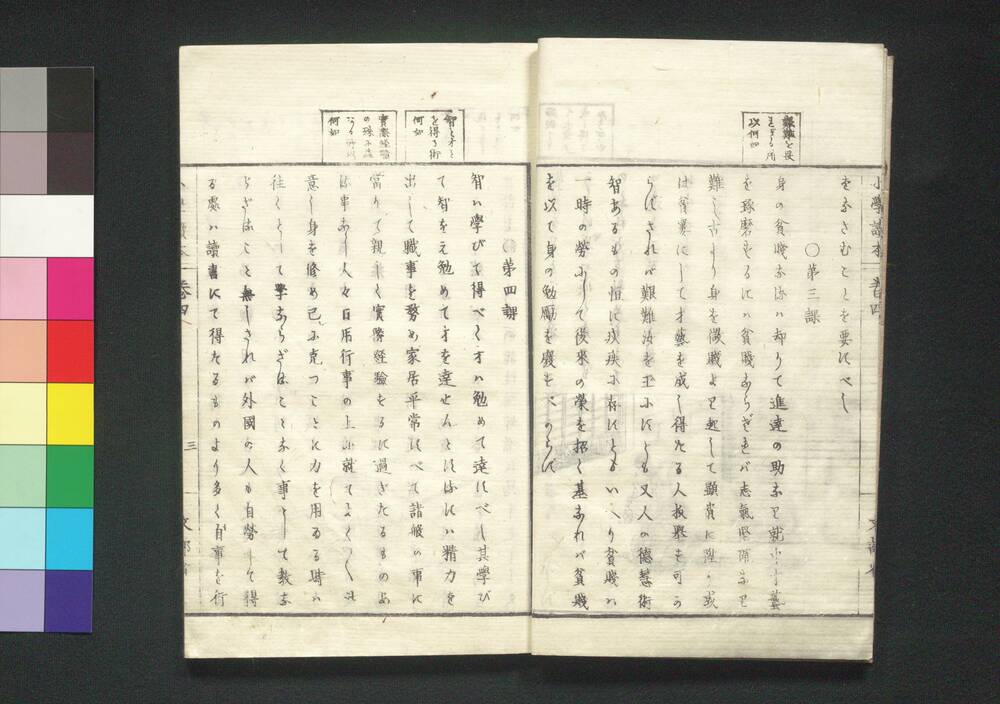 小學讀本 卷四
を為さむことを要にべし
○第三課
艱難を畏
以何如
身の貧賤なるハ却りて進達の助なり就中才藝
を琢磨するにハ貧賤ならざれバ志氣堅確なり
難し古より身を微賤より起して顯貴に陞り或
は貧窶にして才藝を成し得たる人枚擧す可か
らずされバ艱難汝を玉にすとも又人の德慧術
智あるもの恒に疢疾に存すともいへり貧賤ハ
一時の勞にして後來の榮を招く基なれバ貧賤
を以て身の勉勵を廢すべからず
○第四課
智と才と
を得る術
何如
智ハ學びて得べく才ハ勉めて達すべし其學び
て智をえ勉めて才を達せんとするにハ精力を
出して職事を務め家居平常すべて諸般の事に
實際經驗
の
何如
當りて親しく實際經驗をるに過ぎたるものは
事あり人々日用行事の上に就てよく
意し身を修め己に克つことに力を用ゐる時ハ
往くとして學ならざることなく事として教な
らざることと無しされバ外國の人も自勞して得
る處ハ讀書にて得たるものより多く自事を行
卷四
三
文部省